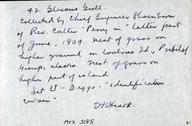 42 Glaucous Gull
Collected by Chief Engineer
of Rev. Cutter Perry in "latter part
of June, 1909. Nest of grass on
higher ground, on Walrus Id., Pribilof
Group, Alaska. Nest of grass on
higher part of island.
Set U - 3 eggs - "identification
certain"